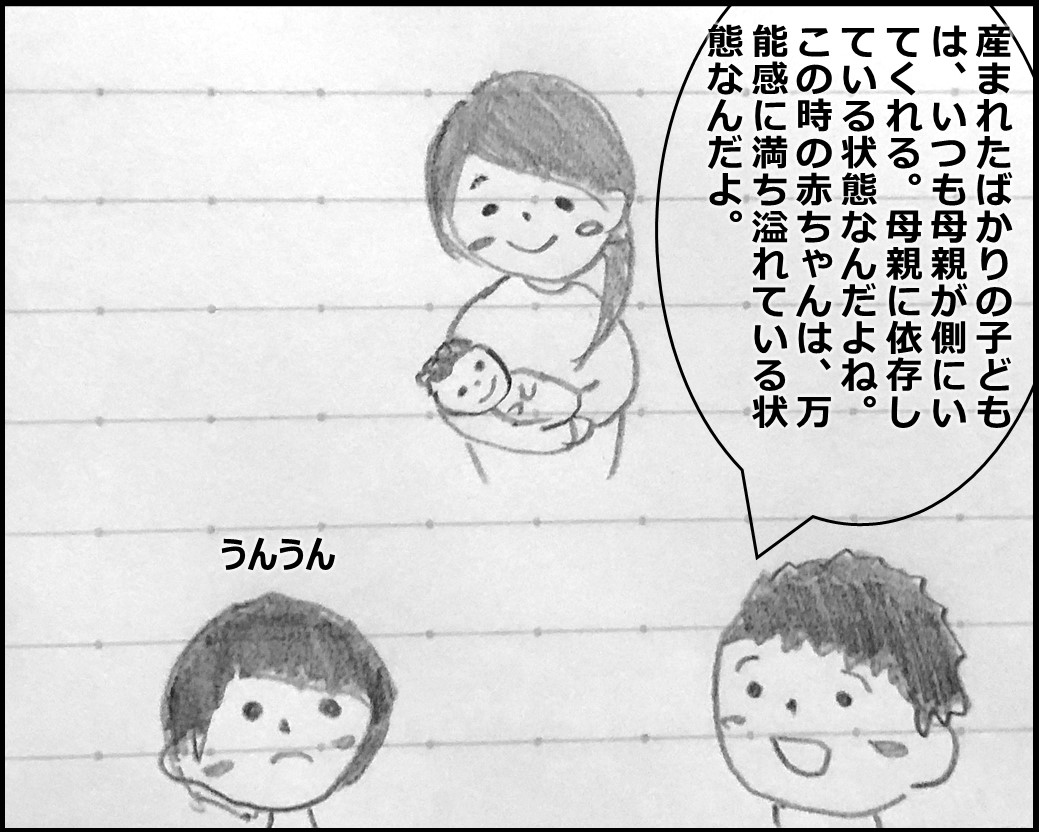 産まれたばかりの子ども
は、いつも母親が側にい
てくれる。母親に依存し
ている状態なんだよね。
この時の赤ちゃんは、万
能感に満ち溢れている状
態なんだよ。
うんうん